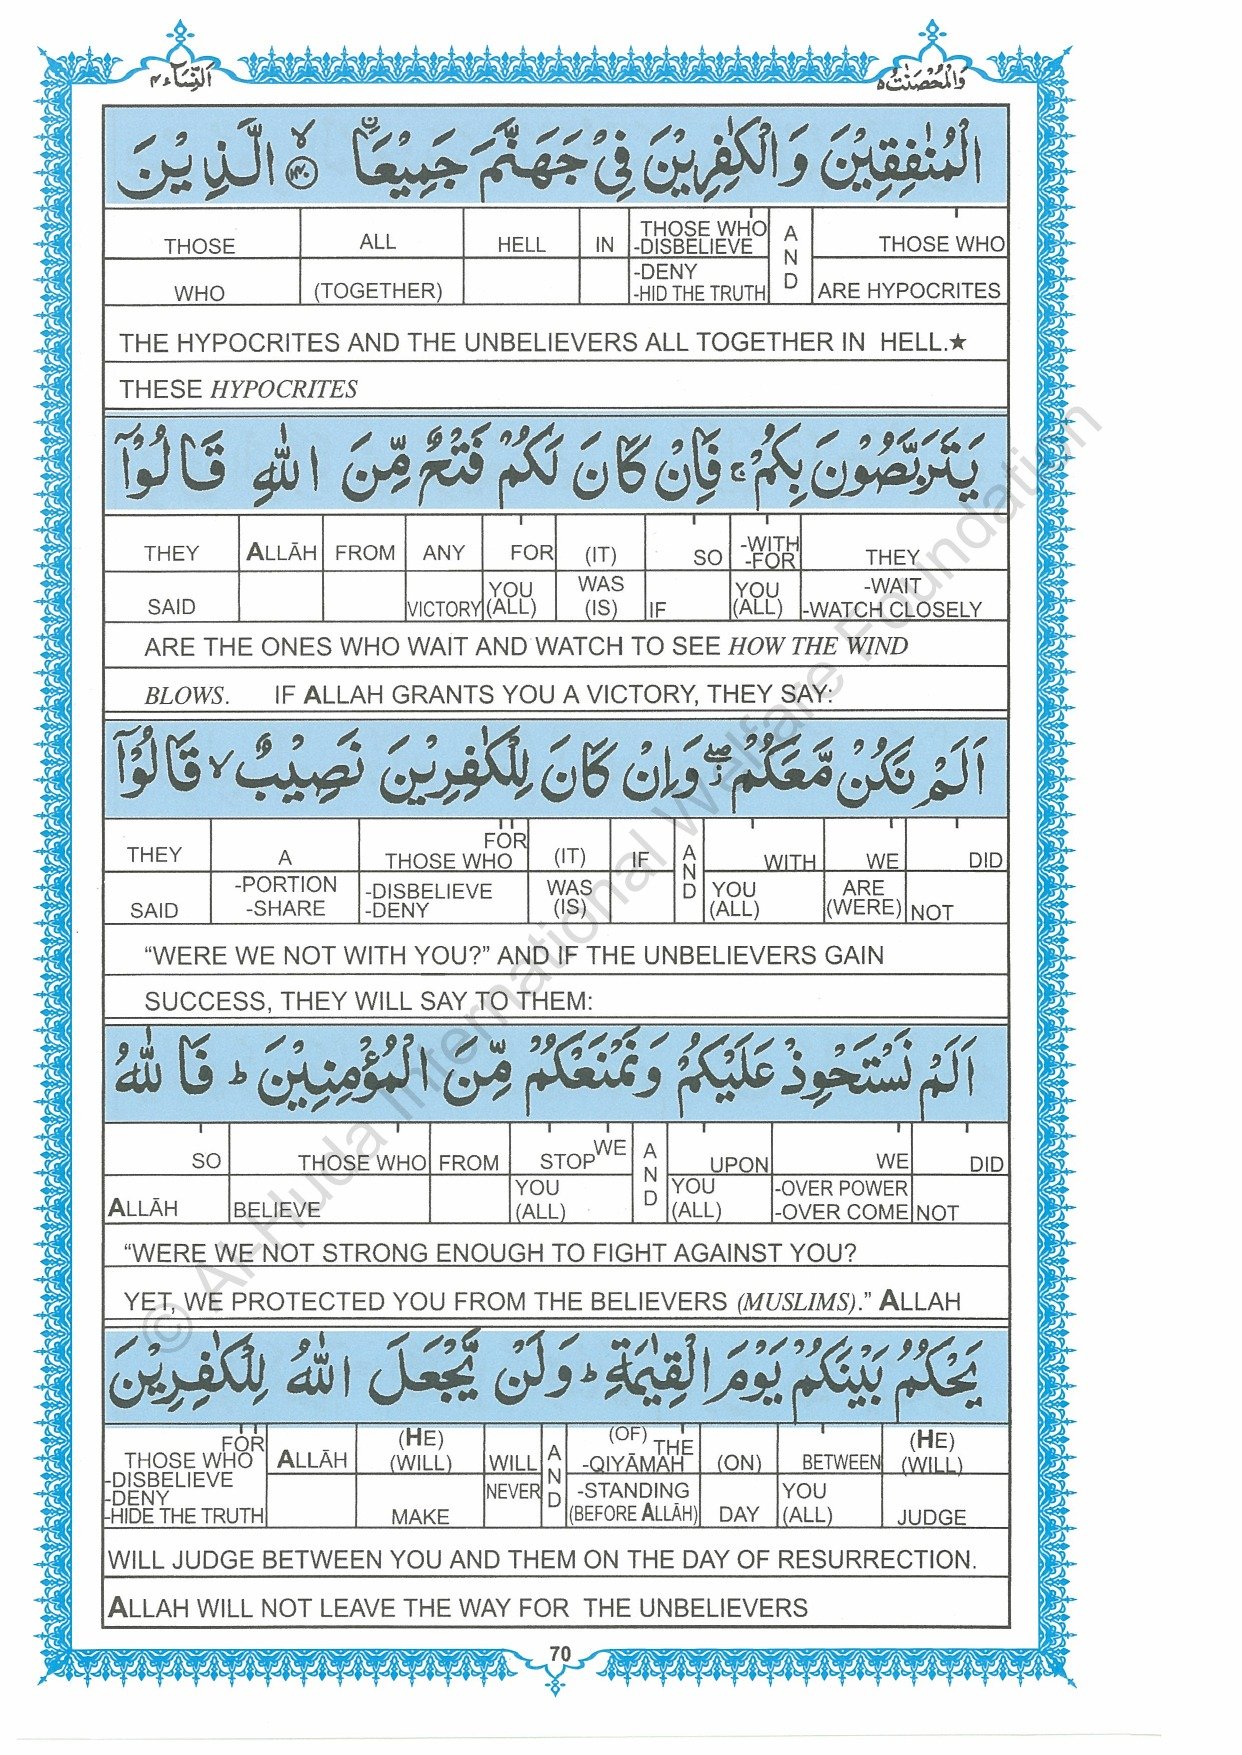 النِّسَآء٤ وَالْمُحْصَنٰتُ٥
الْمُنٰفِقِيْنَ وَالْكٰفِرِيْنَ فِيْ جَهَنَّمَ جَمِيْعَاۨ ۙ﴿۱۴۰﴾ الَّذِيْنَ
THOSE ALL HELL IN THOSE WHO -DISBELIEVE AND THOSE WHO
WHO (TOGETHER) -DENY -HID THE TRUTH ARE HYPOCRITES
THE HYPOCRITES AND THE UNBELIEVERS ALL TOGETHER IN HELL.★
THESE HYPOCRITES
يَتَرَبَّصُوْنَ بِكُمْ ۚ فَاِنْ كَانَ لَكُمْ فَتْحٌ مِّنَ اللّٰهِ قَالُوْٓا
THEY ALLĀH FROM ANY FOR (IT) SO -WITH -FOR THEY
SAID VICTORY YOU (ALL) WAS (IS) IF YOU (ALL) -WAIT -WATCH CLOSELY
ARE THE ONES WHO WAIT AND WATCH TO SEE HOW THE WIND
BLOWS. IF ALLAH GRANTS YOU A VICTORY, THEY SAY:
اَلَمْ نَكُنْ مَّعَكُمْ ۖ وَاِنْ كَانَ لِلْكٰفِرِيْنَ نَصِيْبٌ ۙ قَالُوْٓا
THEY A FOR THOSE WHO (IT) IF AND WITH WE DID
SAID -PORTION -SHARE -DISBELIEVE -DENY WAS (IS) YOU (ALL) ARE (WERE) NOT
“WERE WE NOT WITH YOU?” AND IF THE UNBELIEVERS GAIN
SUCCESS, THEY WILL SAY TO THEM:
اَلَمْ نَسْتَحْوِذْ عَلَيْكُمْ وَنَمْنَعْكُمْ مِّنَ الْمُؤْمِنِيْنَ ؕ فَاللّٰهُ
SO THOSE WHO FROM STOP WE AND UPON WE DID
ALLĀH BELIEVE YOU (ALL) YOU (ALL) -OVER POWER -OVER COME NOT
“WERE WE NOT STRONG ENOUGH TO FIGHT AGAINST YOU?
YET, WE PROTECTED YOU FROM THE BELIEVERS (MUSLIMS).” ALLAH
يَحْكُمُ بَيْنَكُمْ يَوْمَ الْقِيٰمَةِ ؕ وَلَنْ يَّجْعَلَ اللّٰهُ لِلْكٰفِرِيْنَ
FOR THOSE WHO ALLĀH (HE) (WILL) WILL AND (OF) THE -QIYĀMAH (ON) BETWEEN (HE) (WILL)
-DISBELIEVE -DENY -HIDE THE TRUTH MAKE NEVER -STANDING (BEFORE ALLĀH) DAY YOU (ALL) JUDGE
WILL JUDGE BETWEEN YOU AND THEM ON THE DAY OF RESURRECTION.
ALLAH WILL NOT LEAVE THE WAY FOR THE UNBELIEVERS
70
© Al-Huda International Welfare Foundation